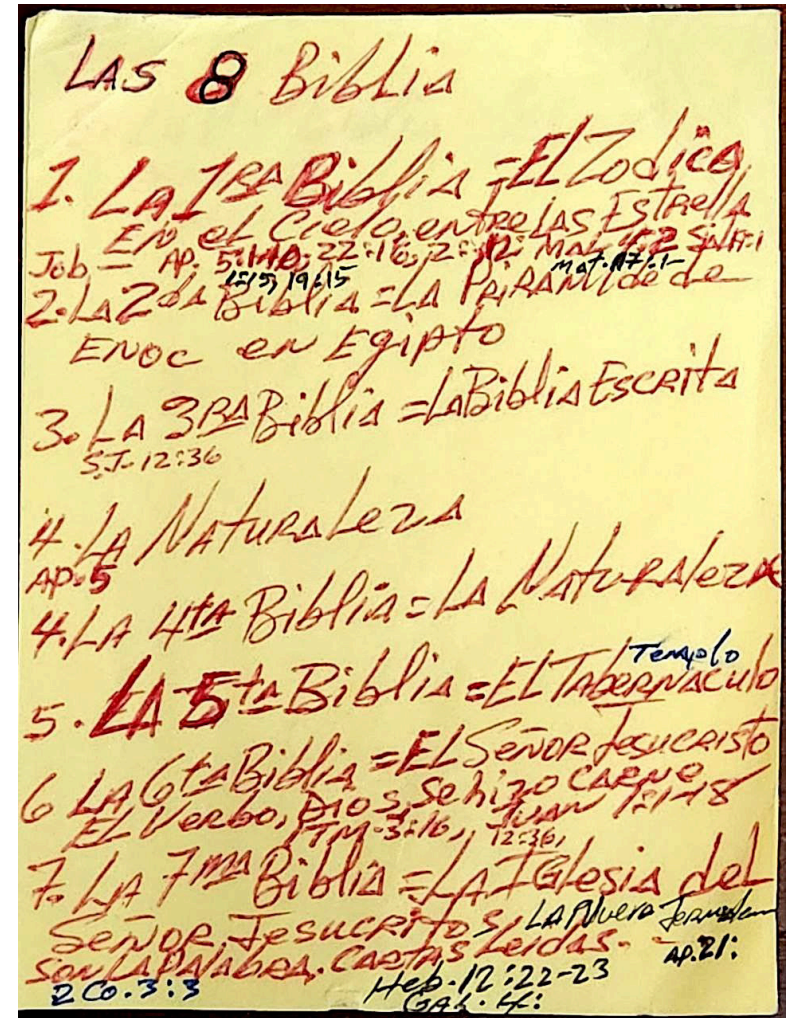 LAS 8 Biblia
1. La 1RA Biblia = El Zodica
EN el Cielo, entre las Estrella
Job - AP. 5: 22:16, 2: 12: 
1:5,15, 19:15 Mat. 17:1-
2. La 2da Biblia = La PRIRAMide de
ENOC en Egipto
3. LA 3RA Biblia = La Biblia Escrita
S.J. 12:36
4. LA NAtuRALeza
AP. 5
4. LA 4ta Biblia = La NatuRAleza
Templo
5. LA 5ta Biblia = EL TABERNACulo
6 LA 6ta Biblia = EL SEÑOR Jesucristo
EL Verbo, Dios, se hizo CARNe
1TM-3:16, Juan 1:1-18
12:36,
7. LA 7MA Biblia = LA IGlesia del
SEÑOR JesucRitos, LA Nueva Jerusalem
SON LA PALABRA. CARTAS Leidas. - AP. 21:
2 Co. 3:3 Heb. 12:22-23
GAL. 4: